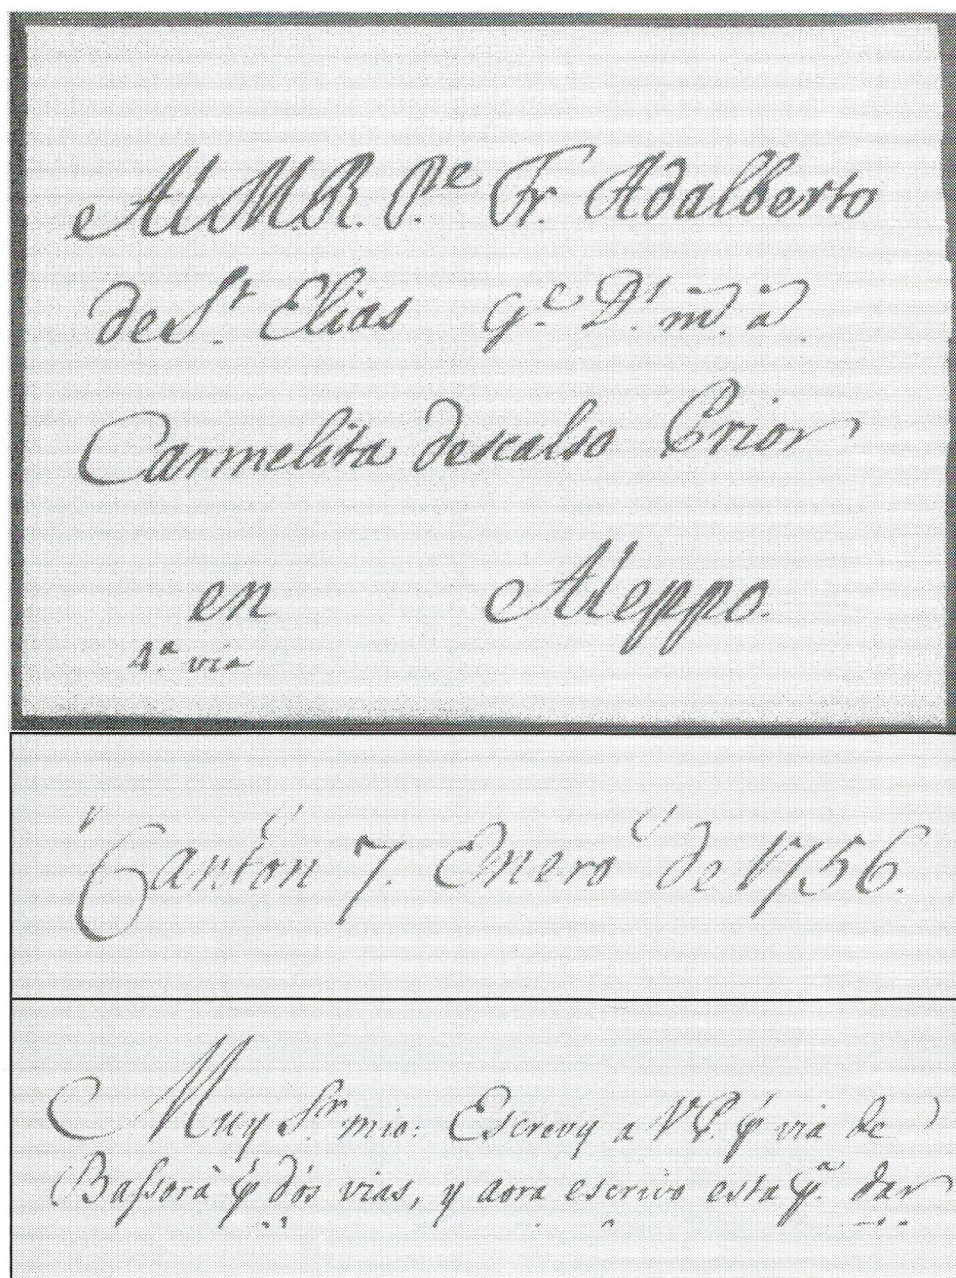 Al M.R. P.e Fr. Adalberto
de S.r Elias q.e D.s m.s a.s
Carmelita descalso Prior
en Aleppo.
4a via
Cantón 7. Enero de 1756.
Muy S.r mio: Escrevy a V.P. p via de
Bassorà p dós vias, y aora escrivo esta p.a dar